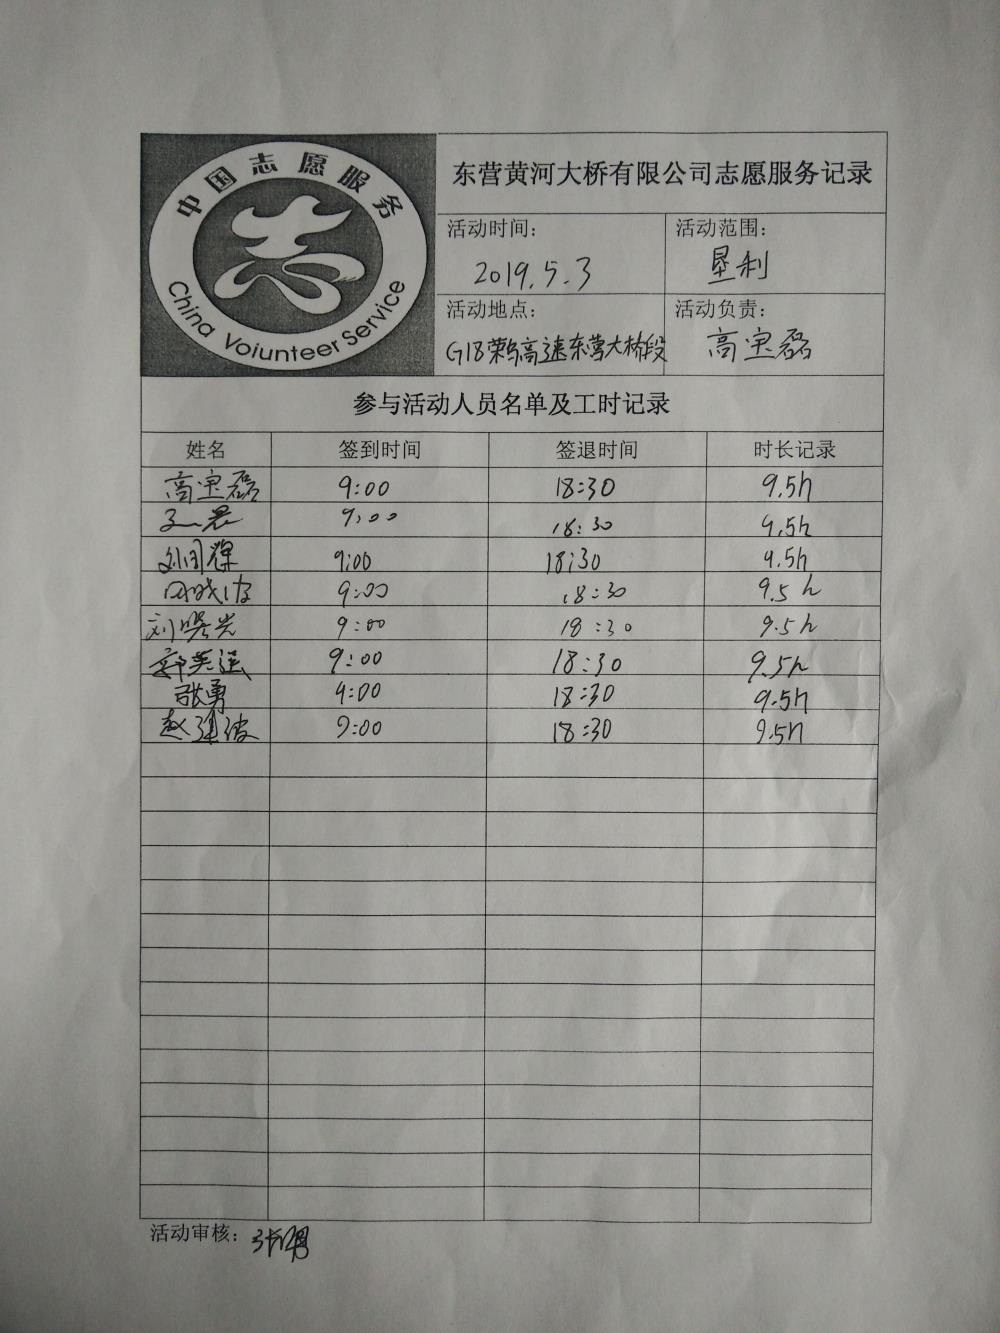 中国志愿服务
China Voiunteer Service
东营黄河大桥有限公司志愿服务记录
活动时间：
2019.5.3
活动范围：
垦利
活动地点：
G18荣乌高速东营大桥段
活动负责：
高宝磊
参与活动人员名单及工时记录
姓名 签到时间 签退时间 时长记录
高宝磊 9:00 18:30 9.5h
9:00 18:30 9.5h
9:00 18:30 9.5h
9:00 18:30 9.5h
刘曙光 9:00 18:30 9.5h
郭英强 9:00 18:30 9.5h
张勇 9:00 18:30 9.5h
赵建波 9:00 18:30 9.5h
活动审核：